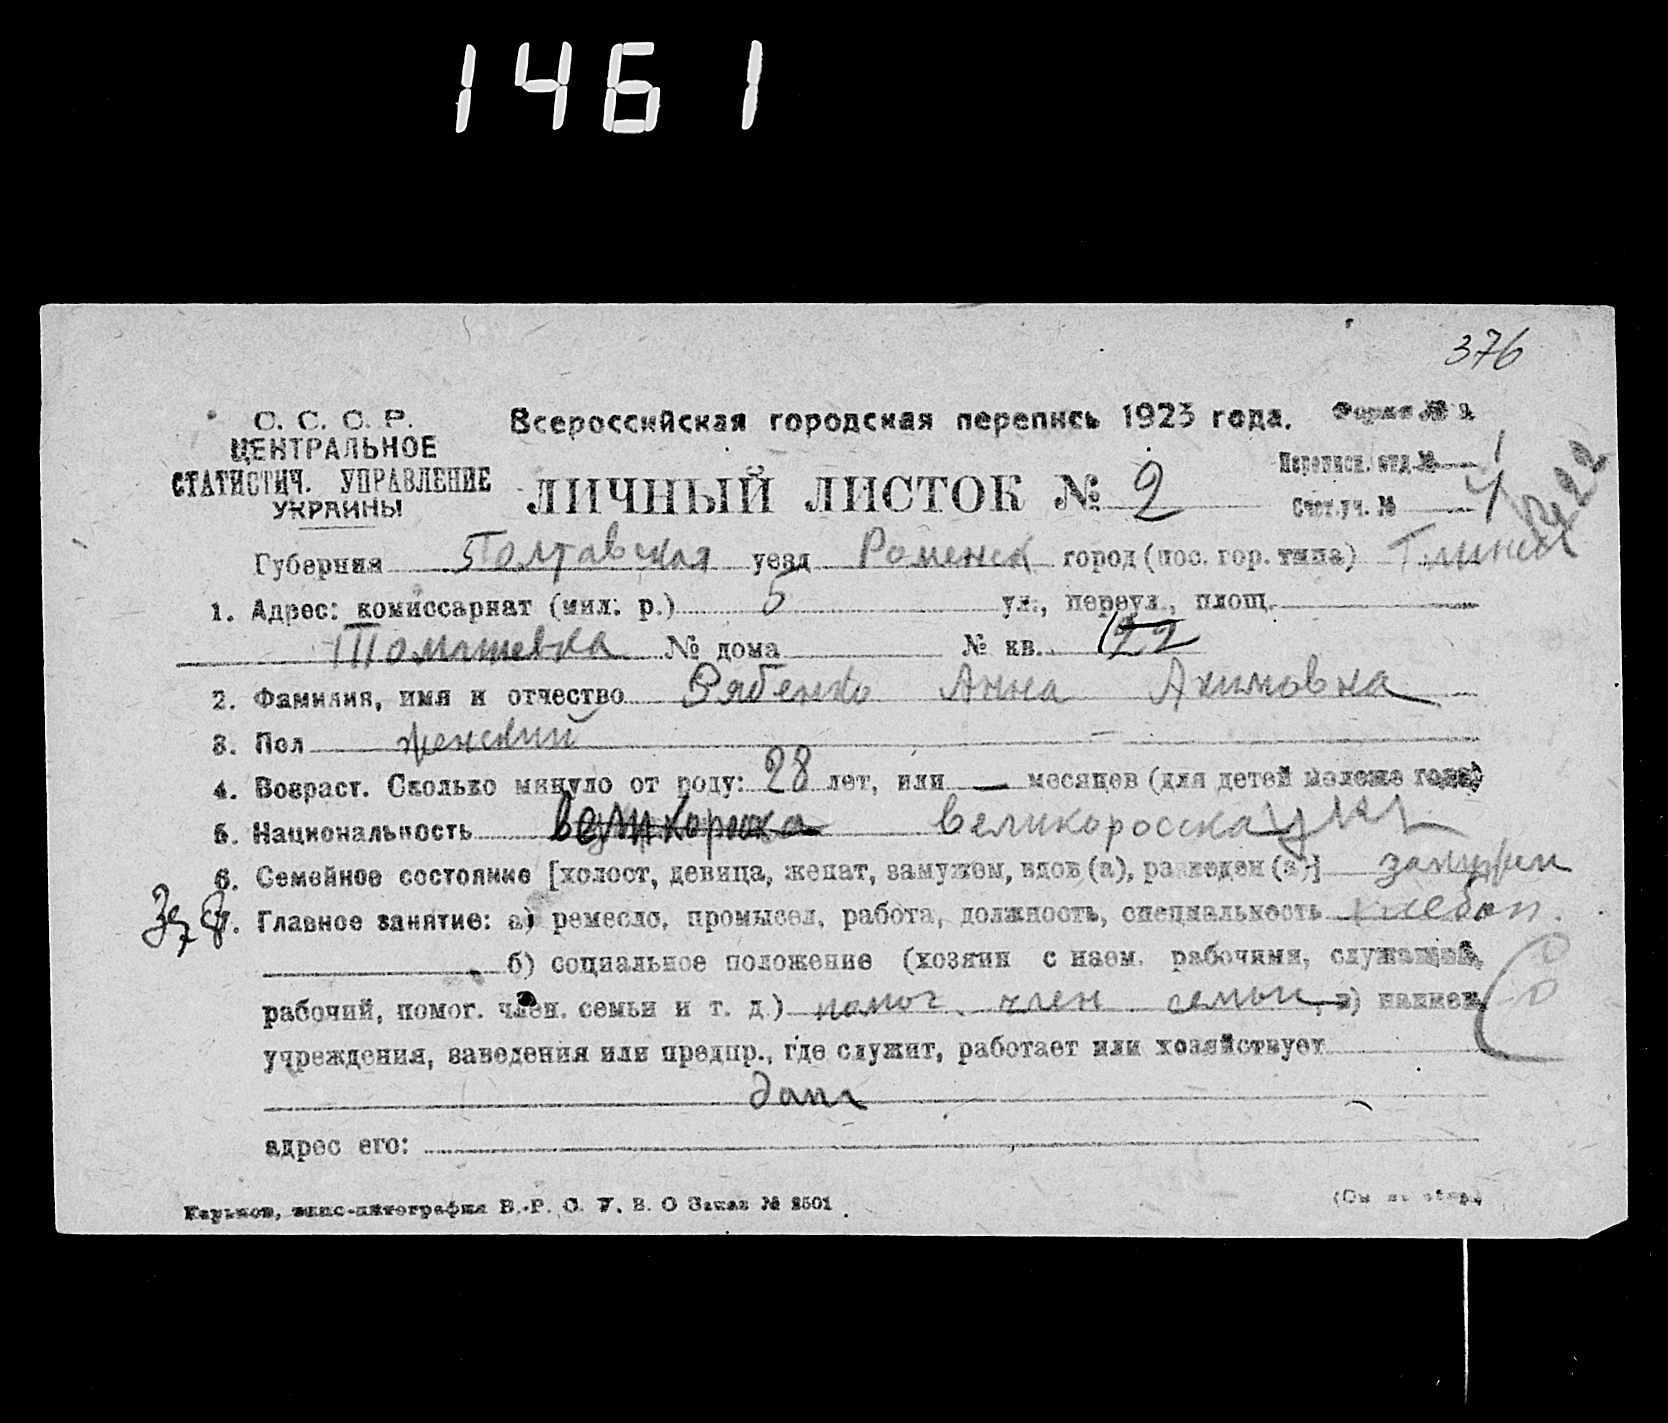 1461
376
С. С. С. Р.
ЦЕНТРАЛЬНОЕ
СТАТИСТИЧ. УПРАВЛЕНИЕ
УКРАИНЫ
Всероссийская городская перепись 1923 года.
Форма №
ЛИЧНЫЙ ЛИСТОК № 2
Переписн. отд. № 1
Счет. уч. № 4
22
Губерния Полтавская уезд Роменск город (пос. гор. типа) Глинск
1. Адрес: комиссариат (мил. р.) 5 ул., переул., площ.
Томашевка № дома № кв. 22
2. Фамилия, имя и отчество Рябенко Анна Акимовна
3. Пол женский —
4. Возраст. Сколько минуло от роду: 28 лет, или — месяцев (для детей моложе года)
5. Национальность великоросска
6. Семейное состояние [холост, девица, женат, замужем, вдов (а), разведен (а)] замужем
7. Главное занятие: а) ремесло, промысел, работа, должность, специальность хлебоп.
б) социальное положение (хозяин с наем. рабочими, служащий,
рабочий, помог. член. семьи и т. д.) помог. член семьи, в) наимен.
учреждения, заведения или предпр., где служит, работает или хозяйствует
дома
адрес его:
Харьков, типо-литография В.-Р. С. У. В. О Заказ № 2501